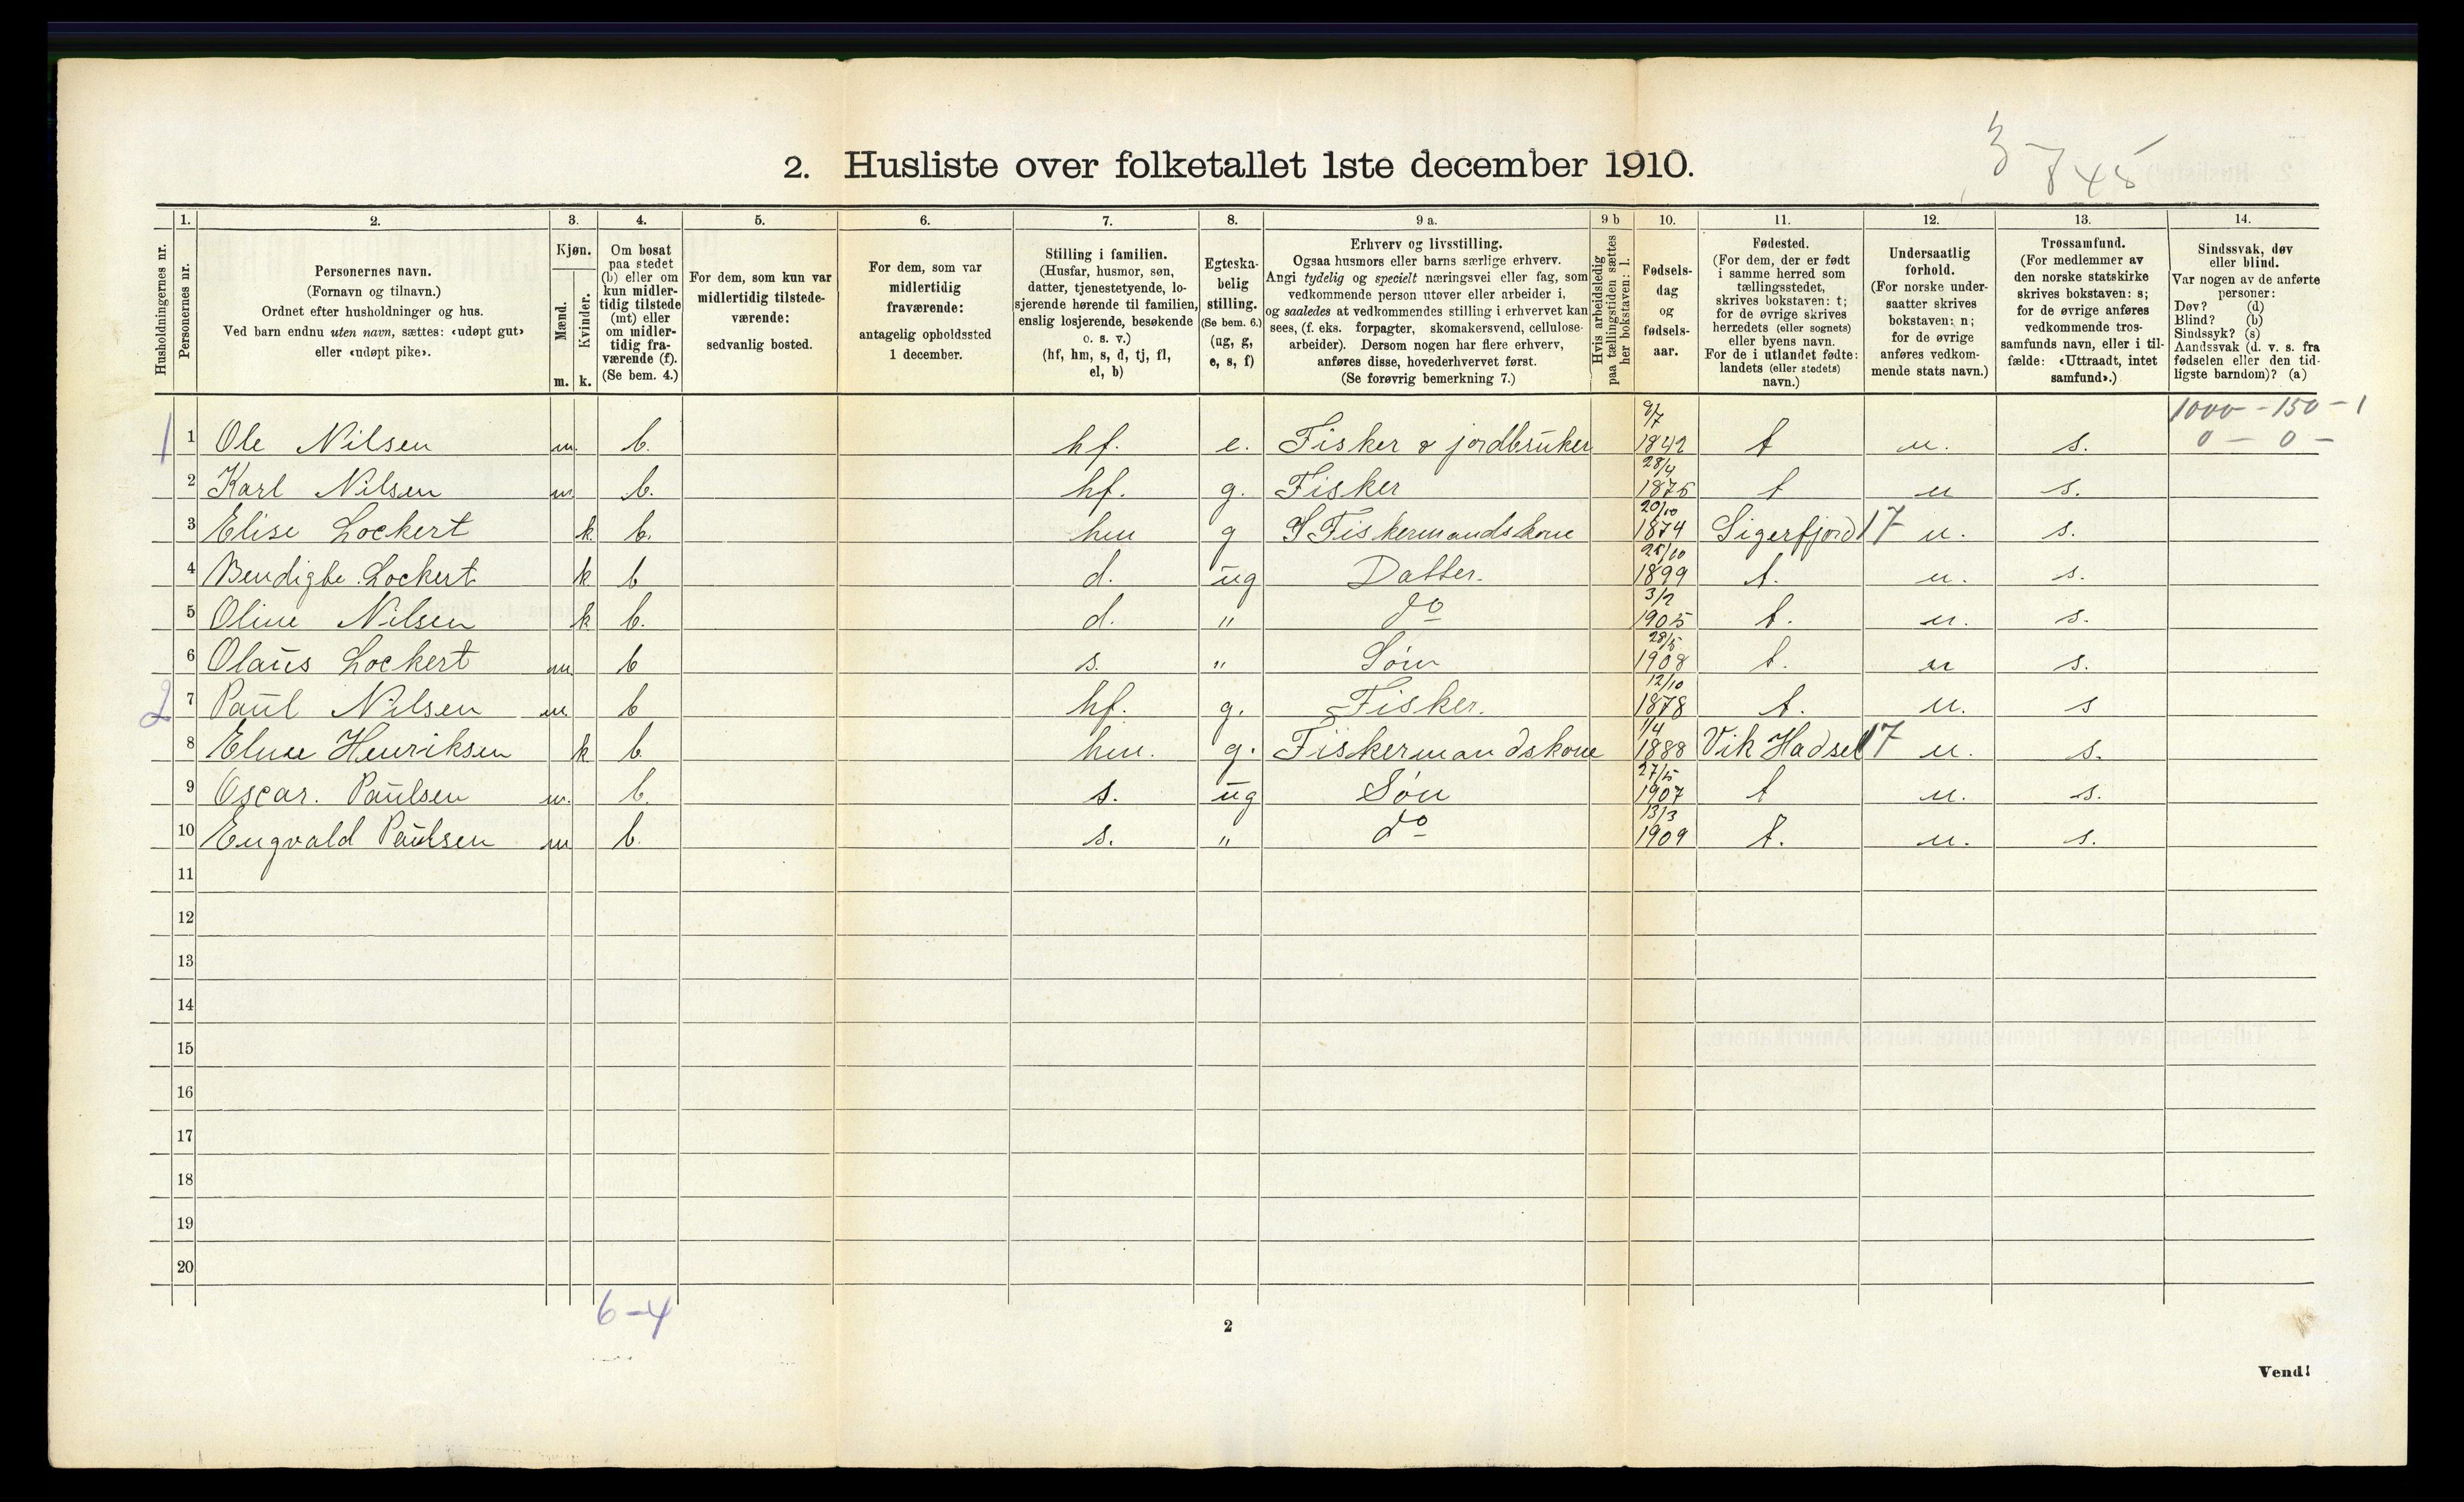 3 - 7 45
2. Husliste over folketallet 1ste december 1910.
Husholdningernes nr.
1.
Personernes nr.
2.
Personernes navn.
(Fornavn og tilnavn.)
Ordnet efter husholdninger og hus.
Ved barn endnu uten navn, sættes: «udøpt gut»
eller «udøpt pike».
3.
Kjøn.
Mænd.
m.
Kvinder.
k.
4.
Om bosat
paa stedet
(b) eller om
kun midler-
tidig tilstede
(mt) eller
om midler-
tidig fra-
værende (f).
(Se bem. 4.)
5.
For dem, som kun var
midlertidig tilstede-
værende:
sedvanlig bosted.
6.
For dem, som var
midlertidig
fraværende:
antagelig opholdssted
1 december.
7.
Stilling i familien.
(Husfar, husmor, søn,
datter, tjenestetyende, lo-
sjerende hørende til familien,
enslig losjerende, besøkende
o. s. v.)
(hf, hm, s, d, tj, fl,
el, b)
8.
Egteska-
belig
stilling.
(Se bem. 6.)
(ug, g,
e, s, f)
9 a.
Erhverv og livsstilling.
Ogsaa husmors eller barns særlige erhverv.
Angi tydelig og specielt næringsvei eller fag, som
vedkommende person utøver eller arbeider i,
og saaledes at vedkommendes stilling i erhvervet kan
sees, (f. eks. forpagter, skomakersvend, cellulose-
arbeider). Dersom nogen har flere erhverv,
anføres disse, hovederhvervet først.
(Se forøvrig bemerkning 7.)
9 b
Hvis arbeidsledig
paa tællingstiden sættes
her bokstaven: l.
10.
Fødsels-
dag
og
fødsels-
aar.
11.
Fødested.
(For dem, der er født
i samme herred som
tællingsstedet,
skrives bokstaven: t;
for de øvrige skrives
herredets (eller sognets)
eller byens navn.
For de i utlandet fødte:
landets (eller stedets)
navn.)
12.
Undersaatlig
forhold.
(For norske under-
saatter skrives
bokstaven: n;
for de øvrige
anføres vedkom-
mende stats navn.)
13.
Trossamfund.
(For medlemmer av
den norske statskirke
skrives bokstaven: s;
for de øvrige anføres
vedkommende tros-
samfunds navn, eller i til-
fælde: «Uttraadt, intet
samfund».)
14.
Sindssvak, døv
eller blind.
Var nogen av de anførte
personer:
Døv? (d)
Blind? (b)
Sindssyk? (s)
Aandssvak (d. v. s. fra
fødselen eller den tid-
ligste barndom)? (a)
1000 - 150 - 1
0 - 0 -
1 1 Ole Nilsen m. b. hf. e. Fisker & jordbruker 9/7 1842 t n. s.
2 Karl Nilsen m b. hf. g. Fisker 28/4 1876 t n s.
3 Elise Lockert k b. hm g S Fiskermandskone 20/10 1874 Sigerfjord 17 n. s.
4 Bendigte Lockert k b d. ug Datter. 25/10 1899 t. n. s.
5 Oline Nilsen k b. d. " do 3/2 1905 t. n. s.
6 Olaus Lockert m b s. " Søn 28/5 1908 t. n s.
2 7 Paul Nilsen m b hf. g. Fisker. 12/10 1878 t. n. s
8 Henriksen k b hm. g. Fiskermandskone 1/4 1888 Vik Hadsel 17 n. s.
9 Oscar. Paulsen m. b. s. ug Søn 27/5 1907 t n. s.
10 Engvald Paulsen m b. s. " do 13/3 1909 t. n. s.
11
12
13
14
15
16
17
18
19
20
6 - 4
2
Vend!